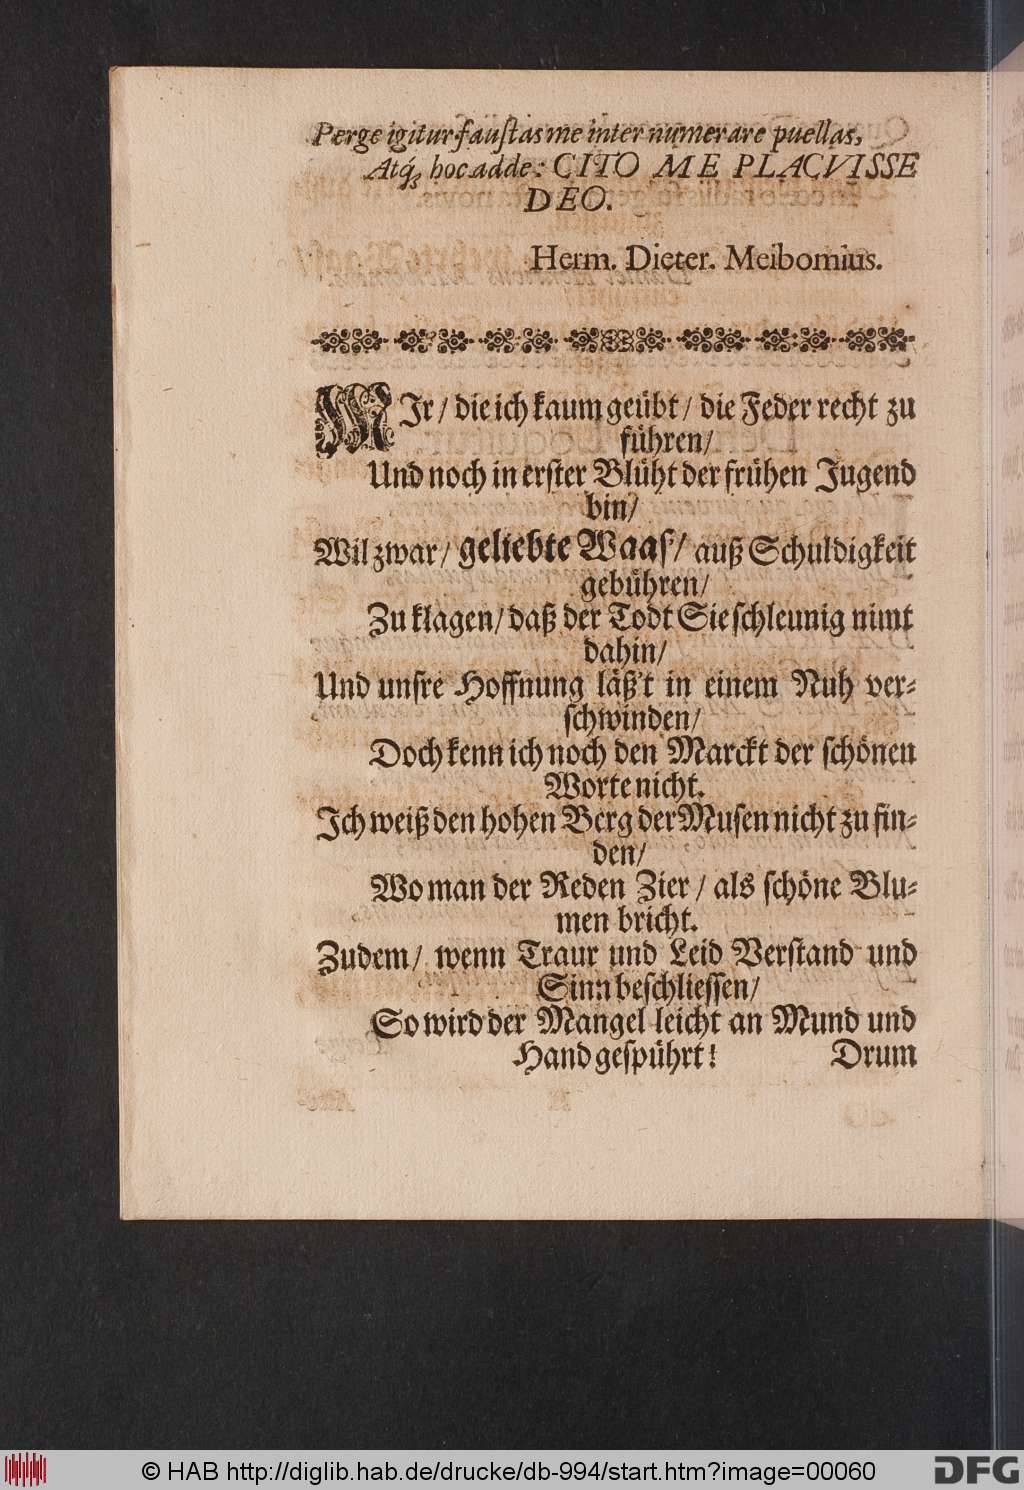 Perge igitur fauſtas me inter numerare puellas,
Atq́; hoc adde: CITO ME PLACVISSE
DEO.
Herm. Dieter. Meibomius.
MIr / die ich kaum geübt / die Feder recht zu
führen /
Und noch in erſter Blüht der frühen Jugend
bin /
Wil zwar / geliebte Waaſ / auß Schuldigkeit
gebühren /
Zu klagen / daß der Todt Sie ſchleunig nimt
dahin /
Und unſre Hoffnung läß't in einem Nuh ver-
ſchwinden /
Doch kenn ich noch den Marckt der ſchönen
Worte nicht.
Ich weiß den hohen Berg der Muſen nicht zu fin-
den /
Wo man der Reden Zier / als ſchöne Blu-
men bricht.
Zudem / wenn Traur und Leid Verſtand und
Sinn beſchlieſſen /
So wird der Mangel leicht an Mund und
Hand geſpührt! Drum
© HAB http://diglib.hab.de/drucke/db-994/start.htm?image=00060
DFG